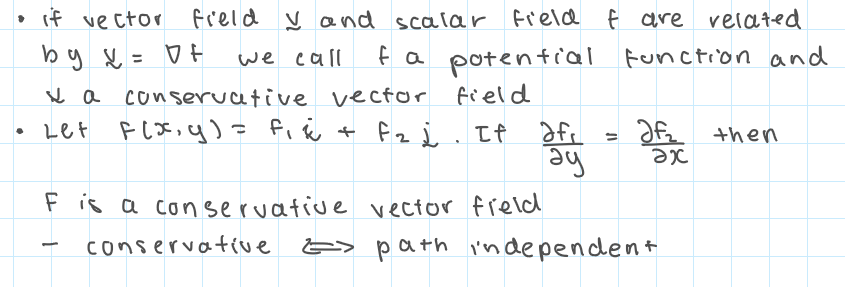 • if vector field v and scalar field f are related
by v = ∇f we call f a potential function and
v a conservative vector field
• Let F(x,y) = f₁ i + f₂ j . If ∂f₁/∂y = ∂f₂/∂x then
F is a conservative vector field
- conservative ⟺ path independent